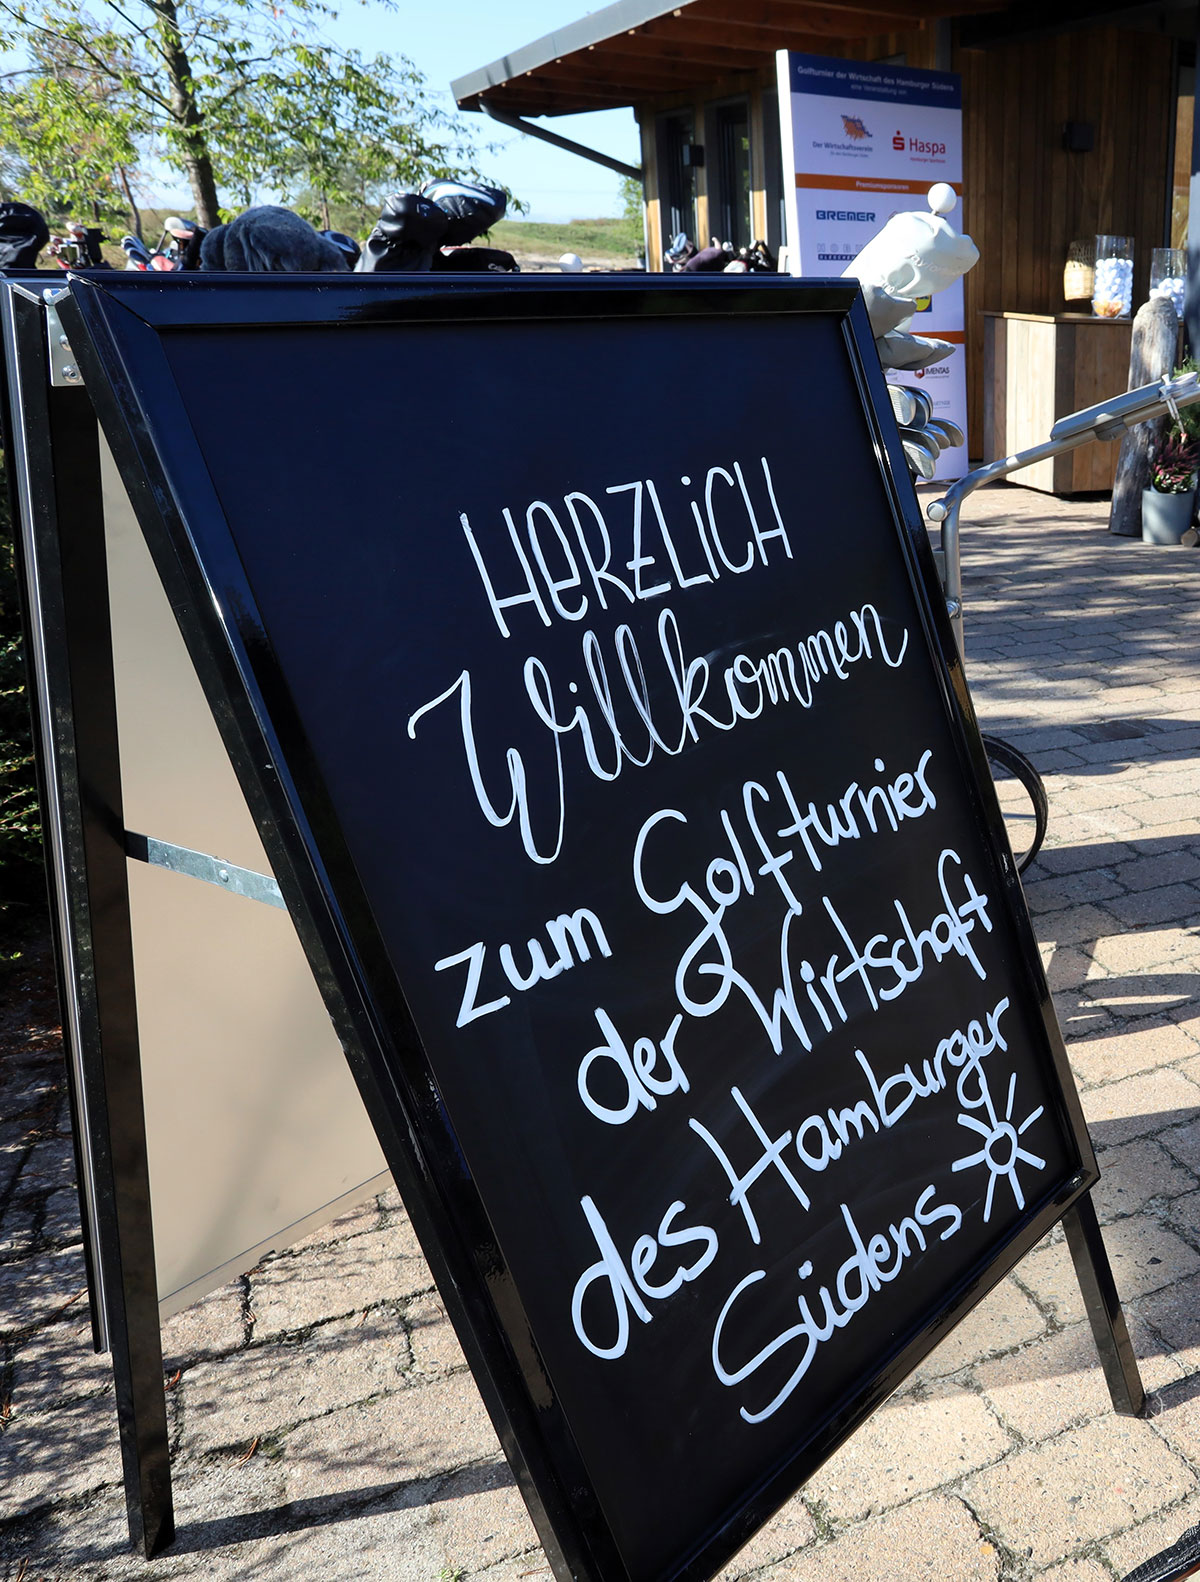 Golfturnier der Wirtschaft des Hamburger Südens
eine Veranstaltung von
Der Wirtschaftsverein
Haspa
Hamburger Sparkasse
Premiumsponsoren
BREMER
HERZLiCH
Willkommen
zum Golfturnier
der Wirtschaft
des Hamburger
Südens